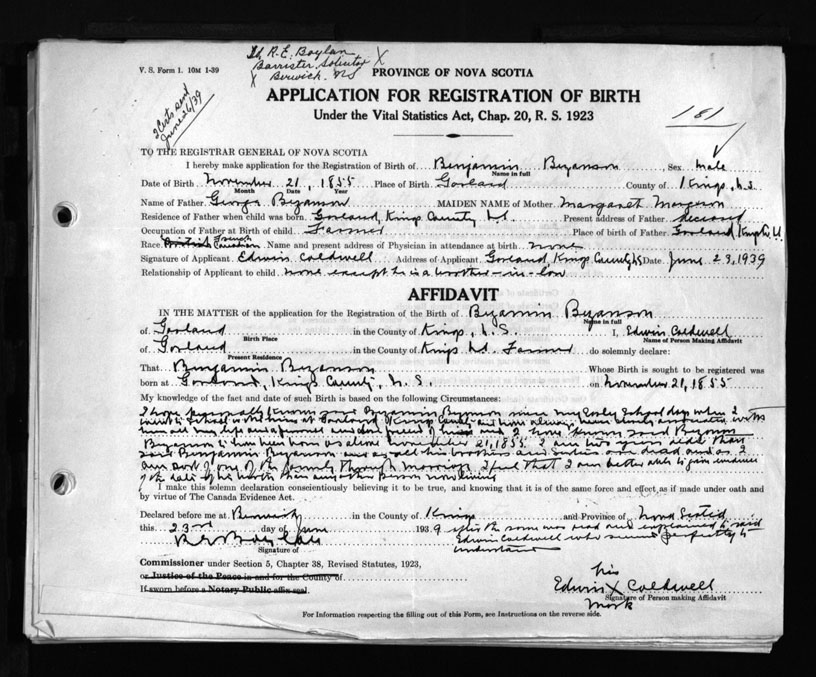 V. S. Form 1. 10M 1-39
R. E. Boylan
Barrister, Solicitor
Berwick, NS
2 Certs send
June 26/39
181
PROVINCE OF NOVA SCOTIA
APPLICATION FOR REGISTRATION OF BIRTH
Under the Vital Statistics Act, Chap. 20, R. S. 1923
TO THE REGISTRAR GENERAL OF NOVA SCOTIA
I hereby make application for the Registration of Birth of Benjamin Bezanson Sex male
Name in full
Date of Birth November 21, 1855 Place of Birth Gorland County of Kings, N.S.
Month Date Year
Name of Father George Bezanson MAIDEN NAME of Mother Margaret
Residence of Father when child was born Gorland, Kings County N.S. Present address of Father deceased
Occupation of Father at Birth of child Farmer Place of birth of Father Gorland, Kings
Race British French Canadian Name and present address of Physician in attendance at birth none
Signature of Applicant Edwin Caldwell Address of Applicant Gorland, Kings County NS Date June 23, 1939
Relationship of Applicant to child none except he is a brother-in-law
AFFIDAVIT
IN THE MATTER of the application for the Registration of the Birth of Benjamin Bezanson
Name in full
of Gorland in the County of Kings, N.S. I, Edwin Caldwell
Birth Place Name of Person Making Affidavit
of Gorland in the County of Kings N.S. Farmer do solemnly declare:
Present Residence
That Benjamin Bezanson Whose Birth is sought to be registered was
born at Gorland, Kings County, N.S. on November 21, 1855
My knowledge of the fact and date of such Birth is based on the following Circumstances:
I have personally known said Benjamin Bezanson since my early School days when I
went to School with him at Gorland Kings County and have always been closely associated with
him all my life and I have known said Benjamin
Bezanson to have been born as above November 21, 1855. I am two years older than
said Benjamin Bezanson and as all his brothers and sisters are dead and as I
am sort of one of the family through marriage I feel that I am better able to give evidence
of the date of his birth than any other Person now living
I make this solemn declaration conscientiously believing it to be true, and knowing that it is of the same force and effect as if made under oath and
by virtue of The Canada Evidence Act.
Declared before me at Berwick in the County of Kings and Province of Nova Scotia
this 23rd day of June 1939 after the same was read and explained to said
Edwin Caldwell who seemed perfectly to
understand
R E Boylan
Signature of
Commissioner under Section 5, Chapter 38, Revised Statutes, 1923,
or Justice of the Peace in and for the County of
If sworn before a Notary Public affix seal.
his
Edwin X Caldwell
mark
Signature of Person making Affidavit
For Information respecting the filling out of this Form, see Instructions on the reverse side.